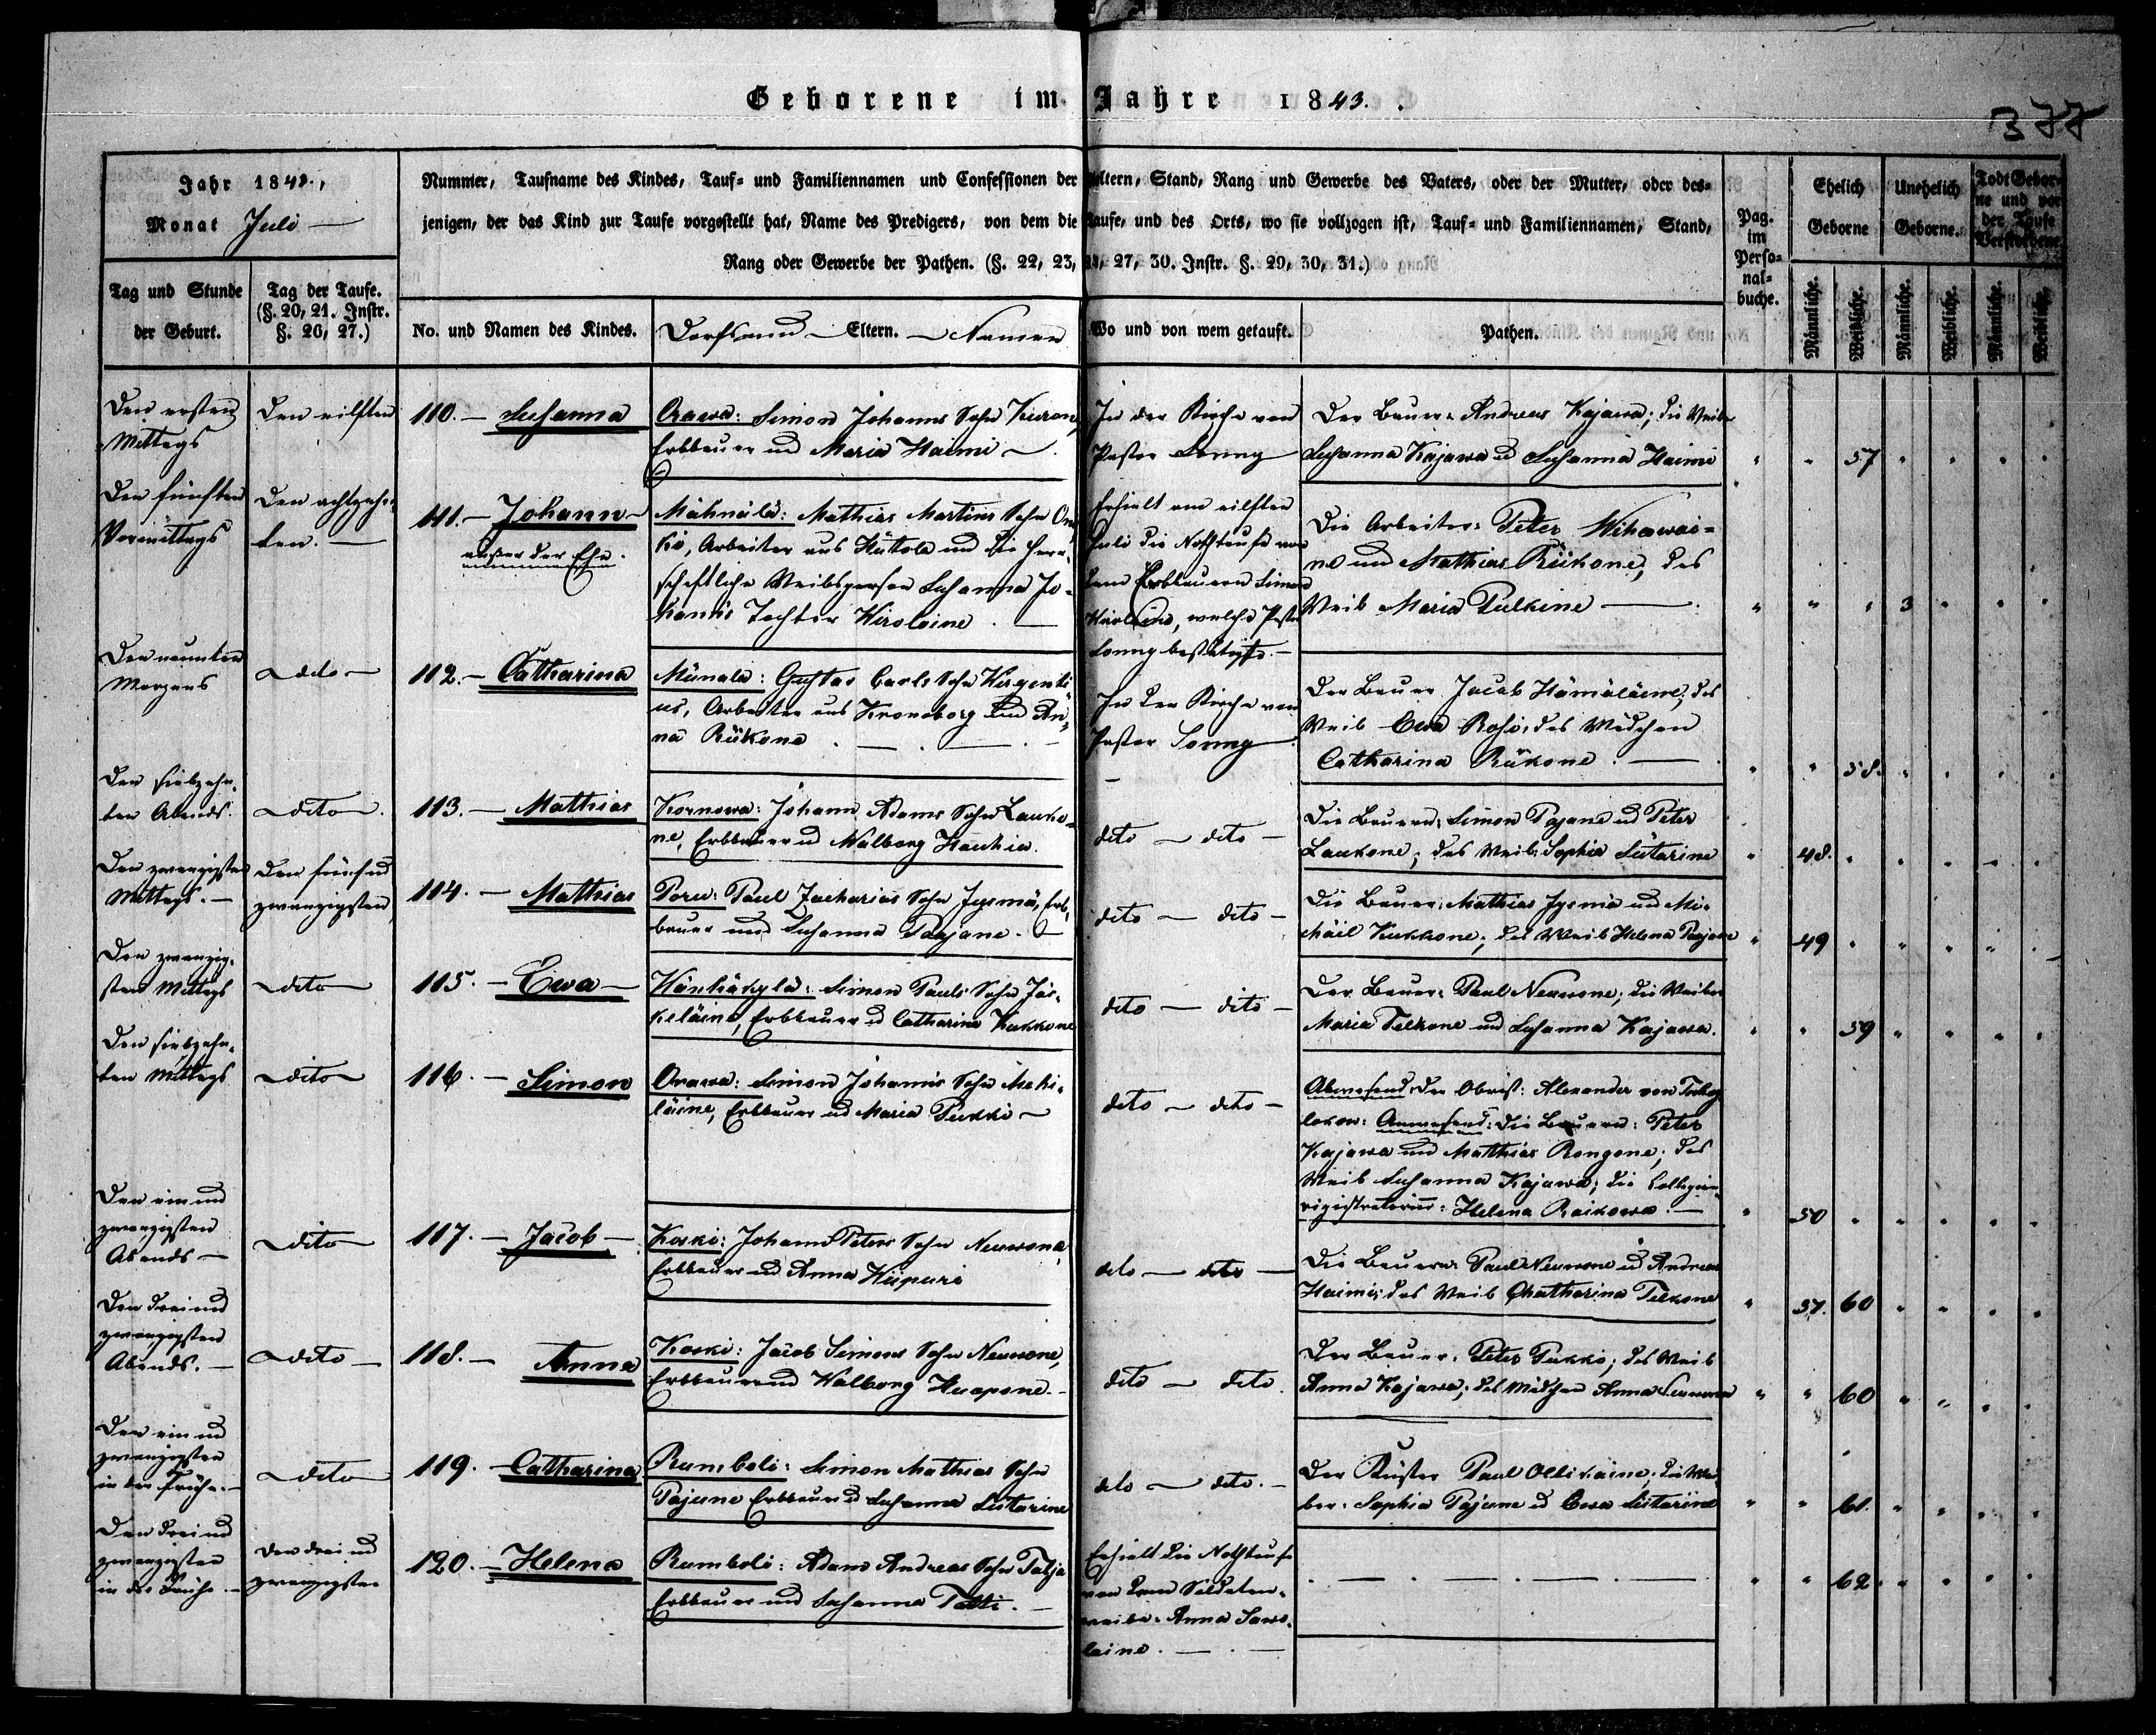 Geborene im Jahre 1843.
377
Jahr 1843.,
Monat Juli
Tag und Stunde
der Geburt.
Tag der Taufe.
(§. 20, 21. Instr.
§. 26, 27.)
Nummer, Taufname des Kindes, Tauf- und Familiennamen und Confessionen der Eltern, Stand, Rang und Gewerbe des Vaters, oder der Mutter, oder des-
jenigen, der das Kind zur Taufe vorgestellt hat, Name des Predigers, von dem die Taufe, und des Orts, wo sie vollzogen ist, Tauf- und Familiennamen, Stand,
Rang oder Gewerbe der Pathen. (§. 22, 23, 24, 27, 30. Instr. §. 29, 30, 31.)
No. und Namen des Kindes.
Dorfs und Eltern. Namen
Wo und von wem getauft.
Pathen.
Pag.
im
Perso-
nal-
buche.
Ehelich
Geborne
Unehelich
Geborne.
Todt Gebor-
ne und vor
der Taufe
Verstorbene.
Männliche.
Weibliche.
Männliche.
Weibliche.
Männliche.
Weibliche.
Den ersten
Mittags
Den eilften
110. Susanna
Orawa: Simon Johanns Sohn
Erbbauer und Maria Haimi
In der Kirche von
Pastor
Der Bauer: Andreas Kajawa; die Weiber
Susanna Kajawa u Susanna Haimi
57
Den fünften
Vormittags
Den achtzehn-
ten.
111. Johann
außer der Ehe.
Mathias Martins Sohn
ko, Arbeiter aus und die herr-
schaftliche Weibsperson Susanna Jo-
hanns Tochter
Erhielt am eilften
Juli die Nothtaufe von
dem Erbbauern Simon
welche Pastor
bestätigte.
Die Arbeiter: Peter Wihawai-
ne und Mathias Rükone, das
Weib Maria Pulkine
3
Den neunten
Morgens
dito
112. Catharina
Gustav Carls Sohn
us, Arbeiter aus Kronoborg und An-
na Rükone
In der Kirche von
Pastor
Der Bauer Jacob Hämäläine; das
Weib Ewa das Mädchen
Catharina Rükone.
58.
Den siebzehn-
ten Abends.
dito
113. Mathias
Johann Adams Sohn Lauko-
ne, Erbbauer u Walborg
dito dito
Die Bauern: Simon Pajane u Peter
Laukone; das Weib: Sophia Siitarine
48.
Den zwanzigsten
Mittags.
Den fünfund
zwanzigsten
114. Mathias
Paul Zacharias Sohn Jysmä, Erb-
bauer und Susanna
dito dito
Die Bauern: Mathias Jysmä und Mi-
chail Kukkone; das Weib Helena
49
Den zwanzig-
sten Mittags
dito
115. Ewa
Simon Pauls Sohn Jäs-
keläine, Erbbauer u Catharina Kukkone
dito dito
Der Bauer: Paul Neuwone; die Weiber
Maria Telkone und Susanna Kajawa.
59
Den siebzehn-
ten Mittags
dito
116. Simon
Orawa: Simon Johanns Sohn Mehi-
läine, Erbbauer u Maria Pukki
dito dito
Abwesend: der Obrist: Alexander von
Anwesend: die Bauern: Peter
Kajawa und Matthias Rongone; das
Weib Susanna Kajawa; die
Helena Raikowa.
50
Den ein und
zwanzigsten
Abends
dito
117. Jacob
Koski: Johann Peters Sohn Neuwone,
Erbbauer u Anna Wiipuri
dito dito
Die Bauern: Paul Neuwone u Andreas
Haimi; das Weib Chatharina Telkone
51. 60
Den drei und
zwanzigsten
Abends.
dito
118. Anna
Koski: Jacob Simons Sohn Neuwone,
Erbbauer und Walborg
dito dito.
Der Bauer: Peter Pukki; das Weib
Anna Kajawa; das Mädchen Anna
60
Den ein und
zwanzigsten
in der Frühe.
dito
119. Catharina
Rumboli: Simon Mathias Sohn
Pajune Erbbauer u Susanna Siitarine
dito dito.
Der Küster Paul Ollikaine; die Wei-
ber: Sophia Pajune u Ewa Siitarine
61.
Den drei und
zwanzigsten
in der Frühe.
Den drei und
zwanzigsten
120. Helena
Rumboli: Adam Andreas Sohn
Erbbauer und Susanna
Erhielt die Nothtaufe
von dem Soldaten-
weibe: Anna Sawo-
laine.
62